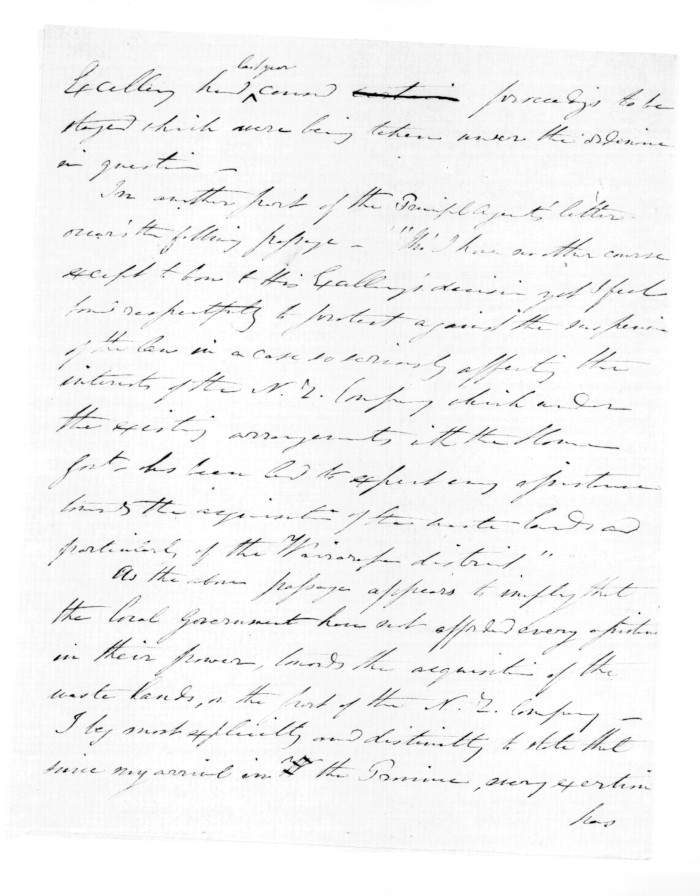 last year
Excellency had caused proceedings to be
stayed which were being taken under the ordinance
in question –
In another part of the Principal Agents' letter
occurs the following passage – "Tho' I have no other course
except to bow to His Excellency's decision yet I feel
bound respectfully to protest against the suspension
of the law in a case so seriously affecting the
interests of the N. Z. Company which under
the existing arrangements with the Home
Govt. has been led to expect every assistance
towards the acquisition of the waste lands and
particularly of the Wairarapa district"
As the above passage appears to imply that
the local Government have not afforded every assistance
in their power, towards the acquisition of the
waste lands, on the part of the N. Z. Company –
I beg most explicitly and distinctly to state that
since my arrival in the Province, every exertion
has